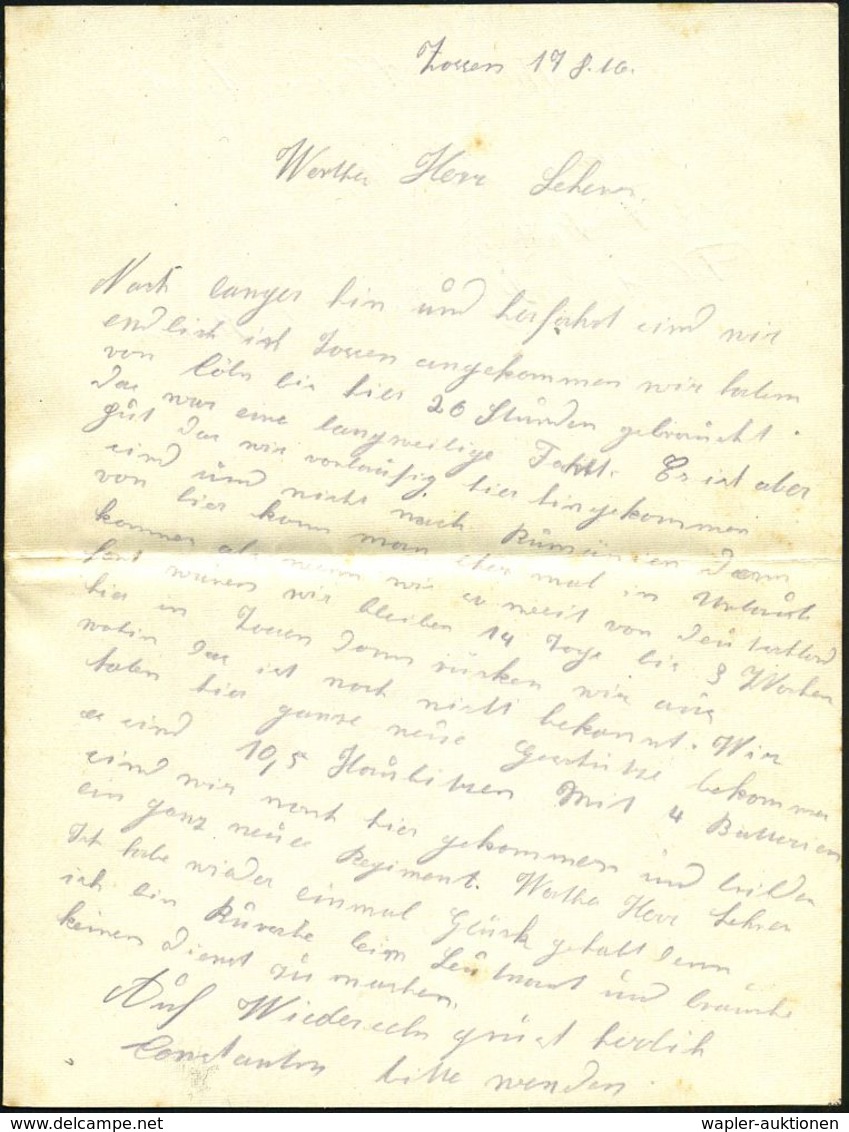 Zossen 17 8.16.
Werther Herr Lehrer.
Nach langer hin und herfahrt sind wir
endlich ist Zossen angekommen wir haben
von Cöln bis hier 26 Stunden gebraucht.
das war eine langweilige Fahrt. Es ist aber
gut das wir vorläufig hier hingekommen
sind und nicht nach Rumänien denn
von hier kann man eher mal in Urlaub
kommen als wenn wir so weit von Deutschland
fort wären wir bleiben 14 Tage bis 3 Wochen
hier in Zossen dann rücken wir aus
wohin das ist noch nicht bekannt. Wir
haben hier ganze neue Geschütze bekommen
es sind 10,5 Haubitzen Mit 4 Batterien
sind wir nach hier gekommen und bilden
ein ganz neues Regiment. Werther Herr Lehrer
Ich habe wieder einmal Glück gehabt denn
ich bin Bursche beim Leutnant und brauche
keinen Dienst zu machen.
Auf Wiedersehn grüst herlich
Constantin bitte wenden.
wapler-auktionen